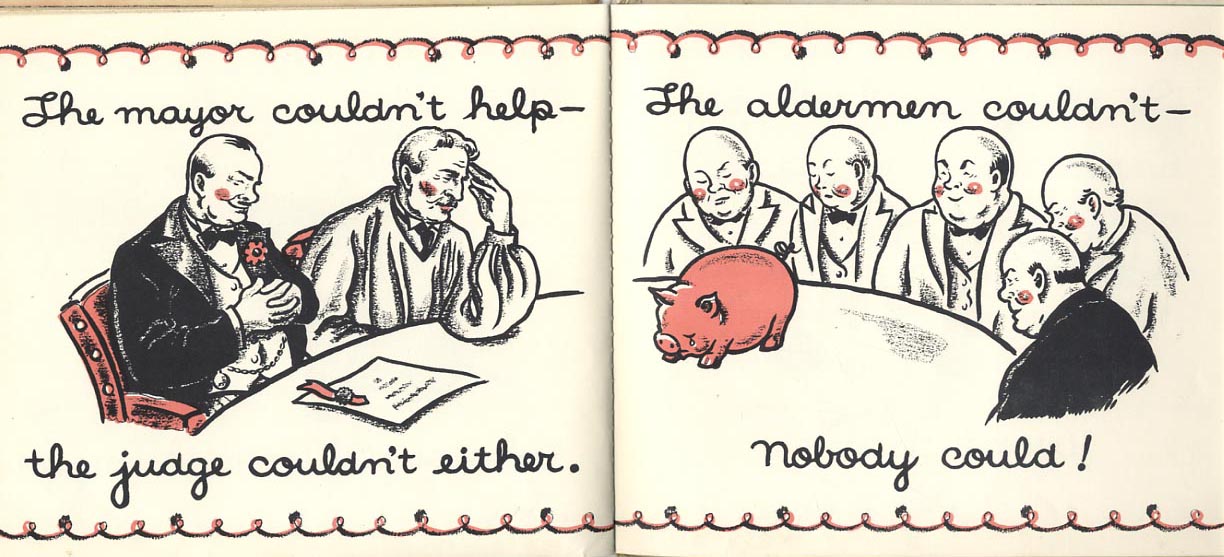 The mayor couldn't help—
the judge couldn't either.
The aldermen couldn't—
nobody could!